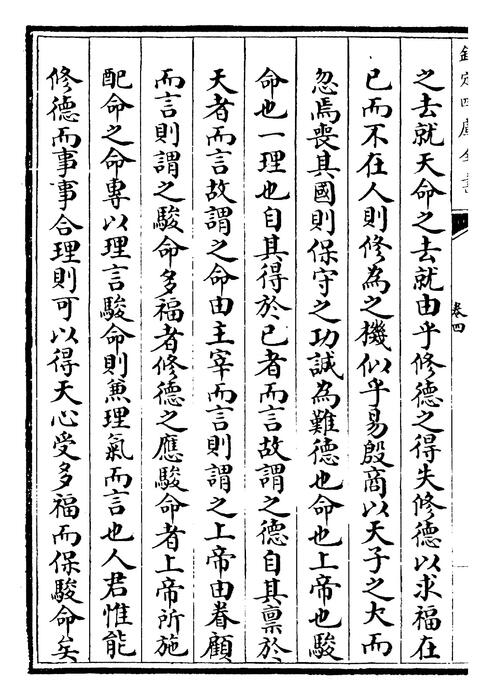 欽定四庫全書
卷四
之去就天命之去就由乎修德之得失修德以求福在
已而不在人則修為之機似乎易殷商以天子之大而
忽焉喪其國則保守之功誠為難德也命也上帝也駿
命也一理也自其得於已者而言故謂之德自其禀於
天者而言故謂之命由主宰而言則謂之上帝由眷顧
而言則謂之駿命多福者修德之應駿命者上帝所施
配命之命專以理言駿命則兼理氣而言也人君惟能
修德而事事合理則可以得天心受多福而保駿命矣